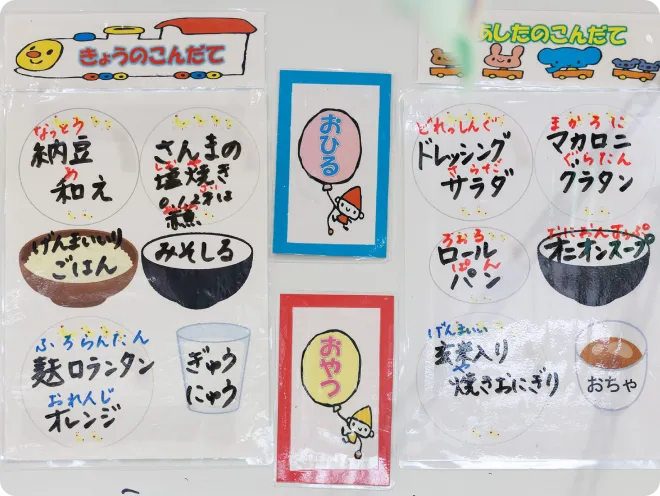 きょうのこんだて
なっとう
納豆
あ
和え
さんまの
しお や
塩焼き
0,1,2才は
煮魚
げんまいいり
ごはん
みそしる
ふろらんたん
麩ロランタン
おれんじ
オレンジ
ぎゅう
にゅう
おひる
おやつ
あしたのこんだて
どれっしんぐ
ドレッシング
さらだ
サラダ
まかろに
マカロニ
ぐらたん
グラタン
ろおる
ロール
ぱん
パン
おにおんすうぷ
オニオンスープ
げんまいい
玄米入り
や
焼きおにぎり
おちゃ